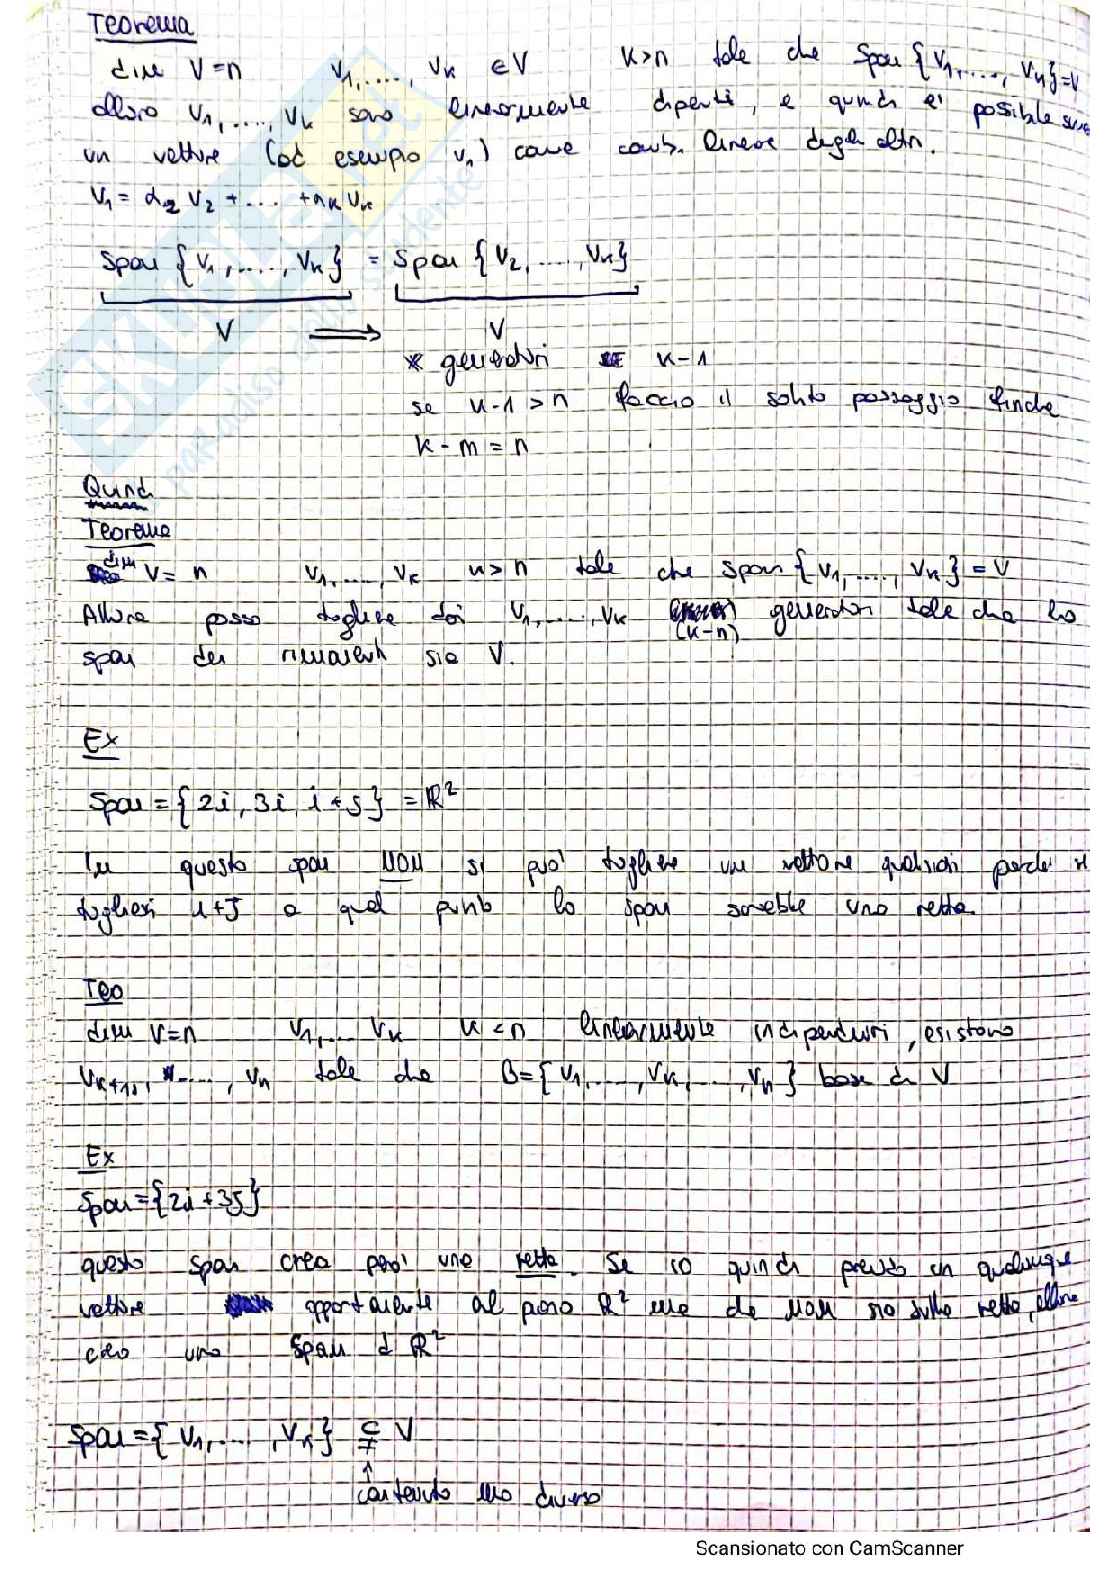 Teorema
dim V=n v1,....., vk ∈V k>n tale che Span {v1,....., vk}=V
allora v1,....,vk sono linearmente dipenti, e quindi e' possibile
un vettore (ad esempio v1) come comb. lineare degli altri.
v1= α2 v2 + ... +αk vk
Span {v1,....., vk} = Span {v2,.....,vk}
V ⟹ V
generatori k-1
se k-1 > n faccio il solito passaggio finche
k-m=n
Quindi
Teorema
dim V= n v1,....,vk k>n tale che span {v1,....., vk} = V
Allora posso togliere dai v1,....,vk (k-n) generatori tale che lo
span dei rimanenti sia V.
Ex
Span={2i, 3i, i+j} =ℝ²
In questo span NON si puo' togliere un vettore qualsiasi perche se
togliessi i+j a quel punto lo span sarebbe una retta.
Teo
dim V=n v1,... vk k<n linearmente indipendenti, esistono
vk+1, ....., vn tale che B={v1,....,vk,....,vn} base di V
Ex
Span={2i+3j}
questo span crea però una retta. Se io quindi prendo un qualunque
vettore appartenente al piano ℝ² ma che non sia sulla retta, allora
creo uno span di ℝ²
Span={v1,....,vk} ⊊ V
↑
contenuto ma diverso
EKUNEET
paradiso dello studente
Scansionato con CamScanner